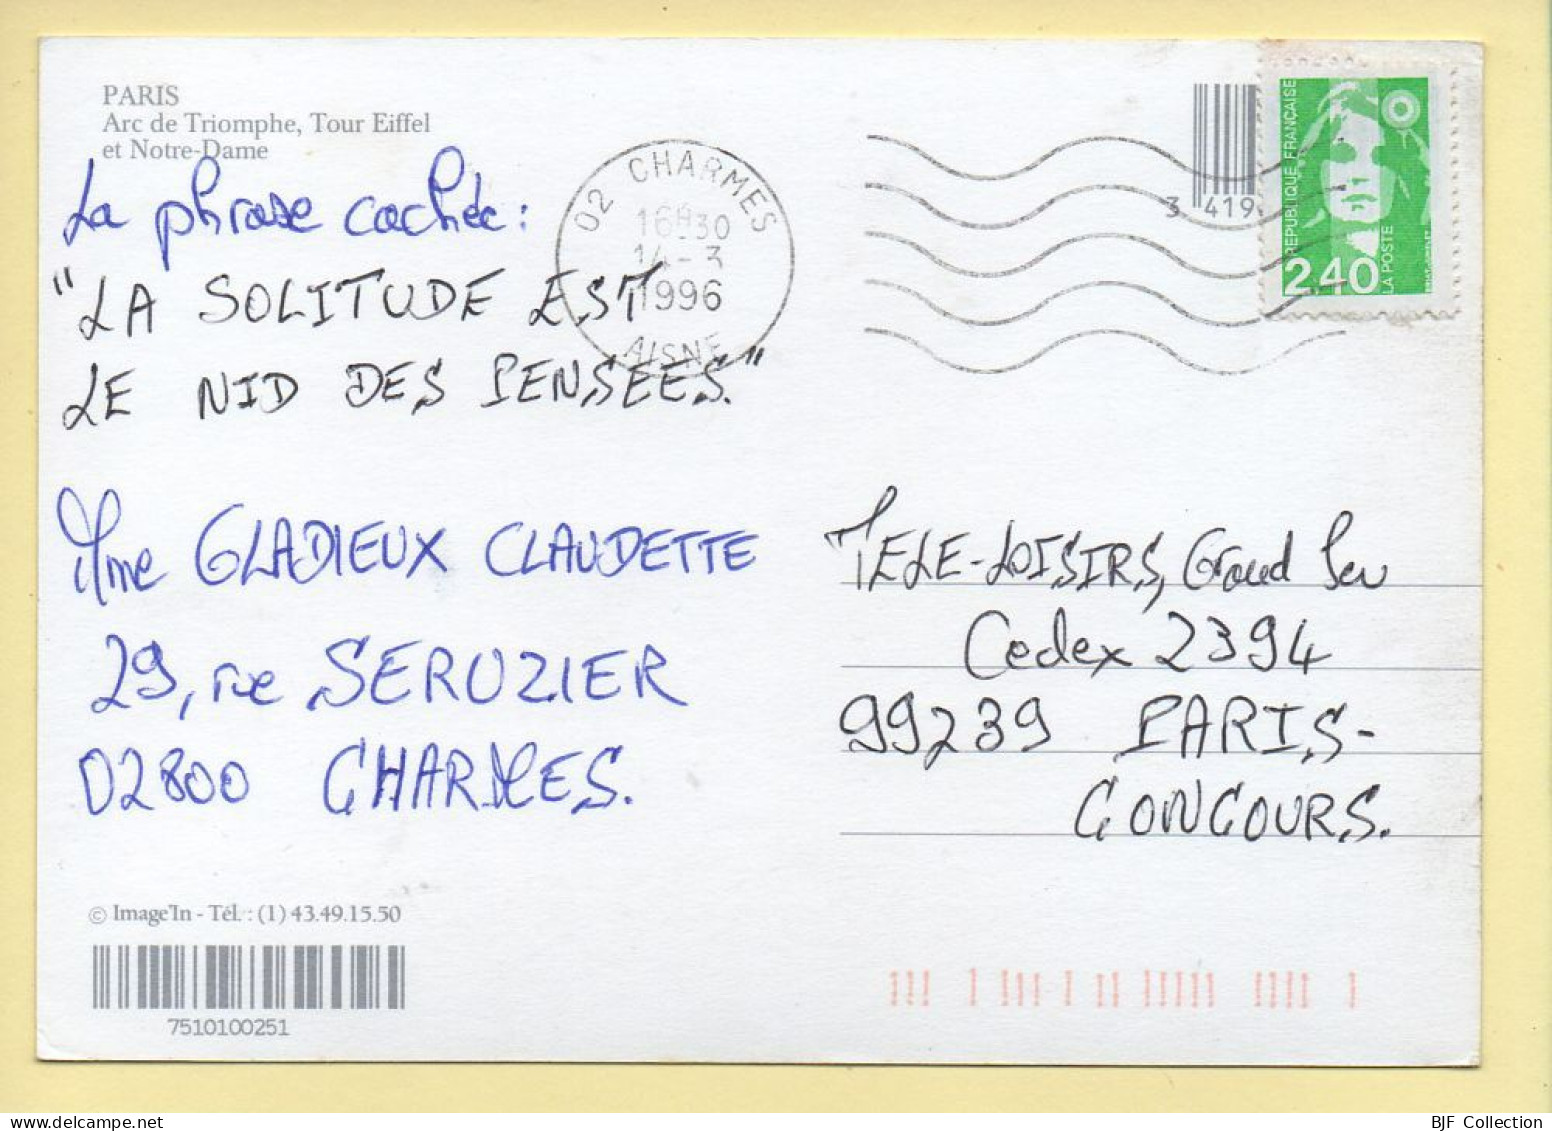 PARIS
Arc de Triomphe, Tour Eiffel
et Notre-Dame
La phrase cachée :
"LA SOLITUDE EST
LE NID DES PENSEES."
Mme GLADIEUX CLAUDETTE
29, rue SERUZIER
02800 CHARMES.
© Image'In - Tél. : (1) 43.49.15.50
7510100251
02 CHARMES
16H30
14-3
1996
AISNE
3 419
REPUBLIQUE FRANÇAISE
2,40
LA POSTE
TELE-LOISIRS, Grand Jeu
Cedex 2394
99239 PARIS-
CONCOURS.
BJF Collection